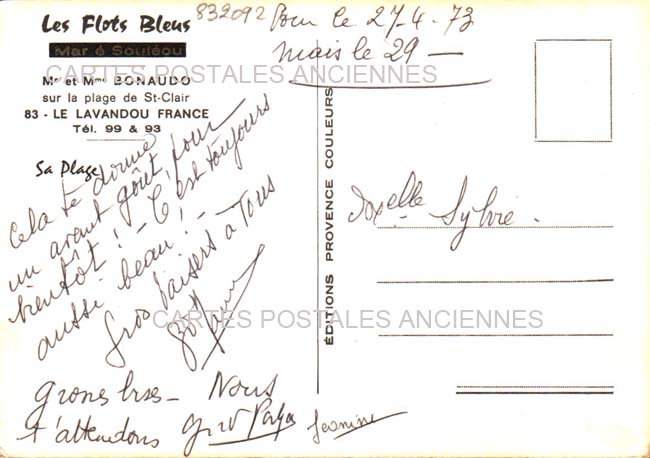 Les Flots Bleus
Mar é Souléou
Mr et Mme BONAUDO
sur la plage de St-Clair
83 - LE LAVANDOU FRANCE
Tél. 99 & 93
Sa Plage
832092
Pour le 27-4-73
mais le 29 —
CARTES POSTALES ANCIENNES
Cela te donne
un avant goût, pour
bientôt ! - C'est toujours
aussi beau ! -
Gros baisers à Tous
Grosses bises - Nous
t'attendons
Jeannine
EDITIONS PROVENCE COULEURS
Sylvie.
CARTES POSTALES ANCIENNES